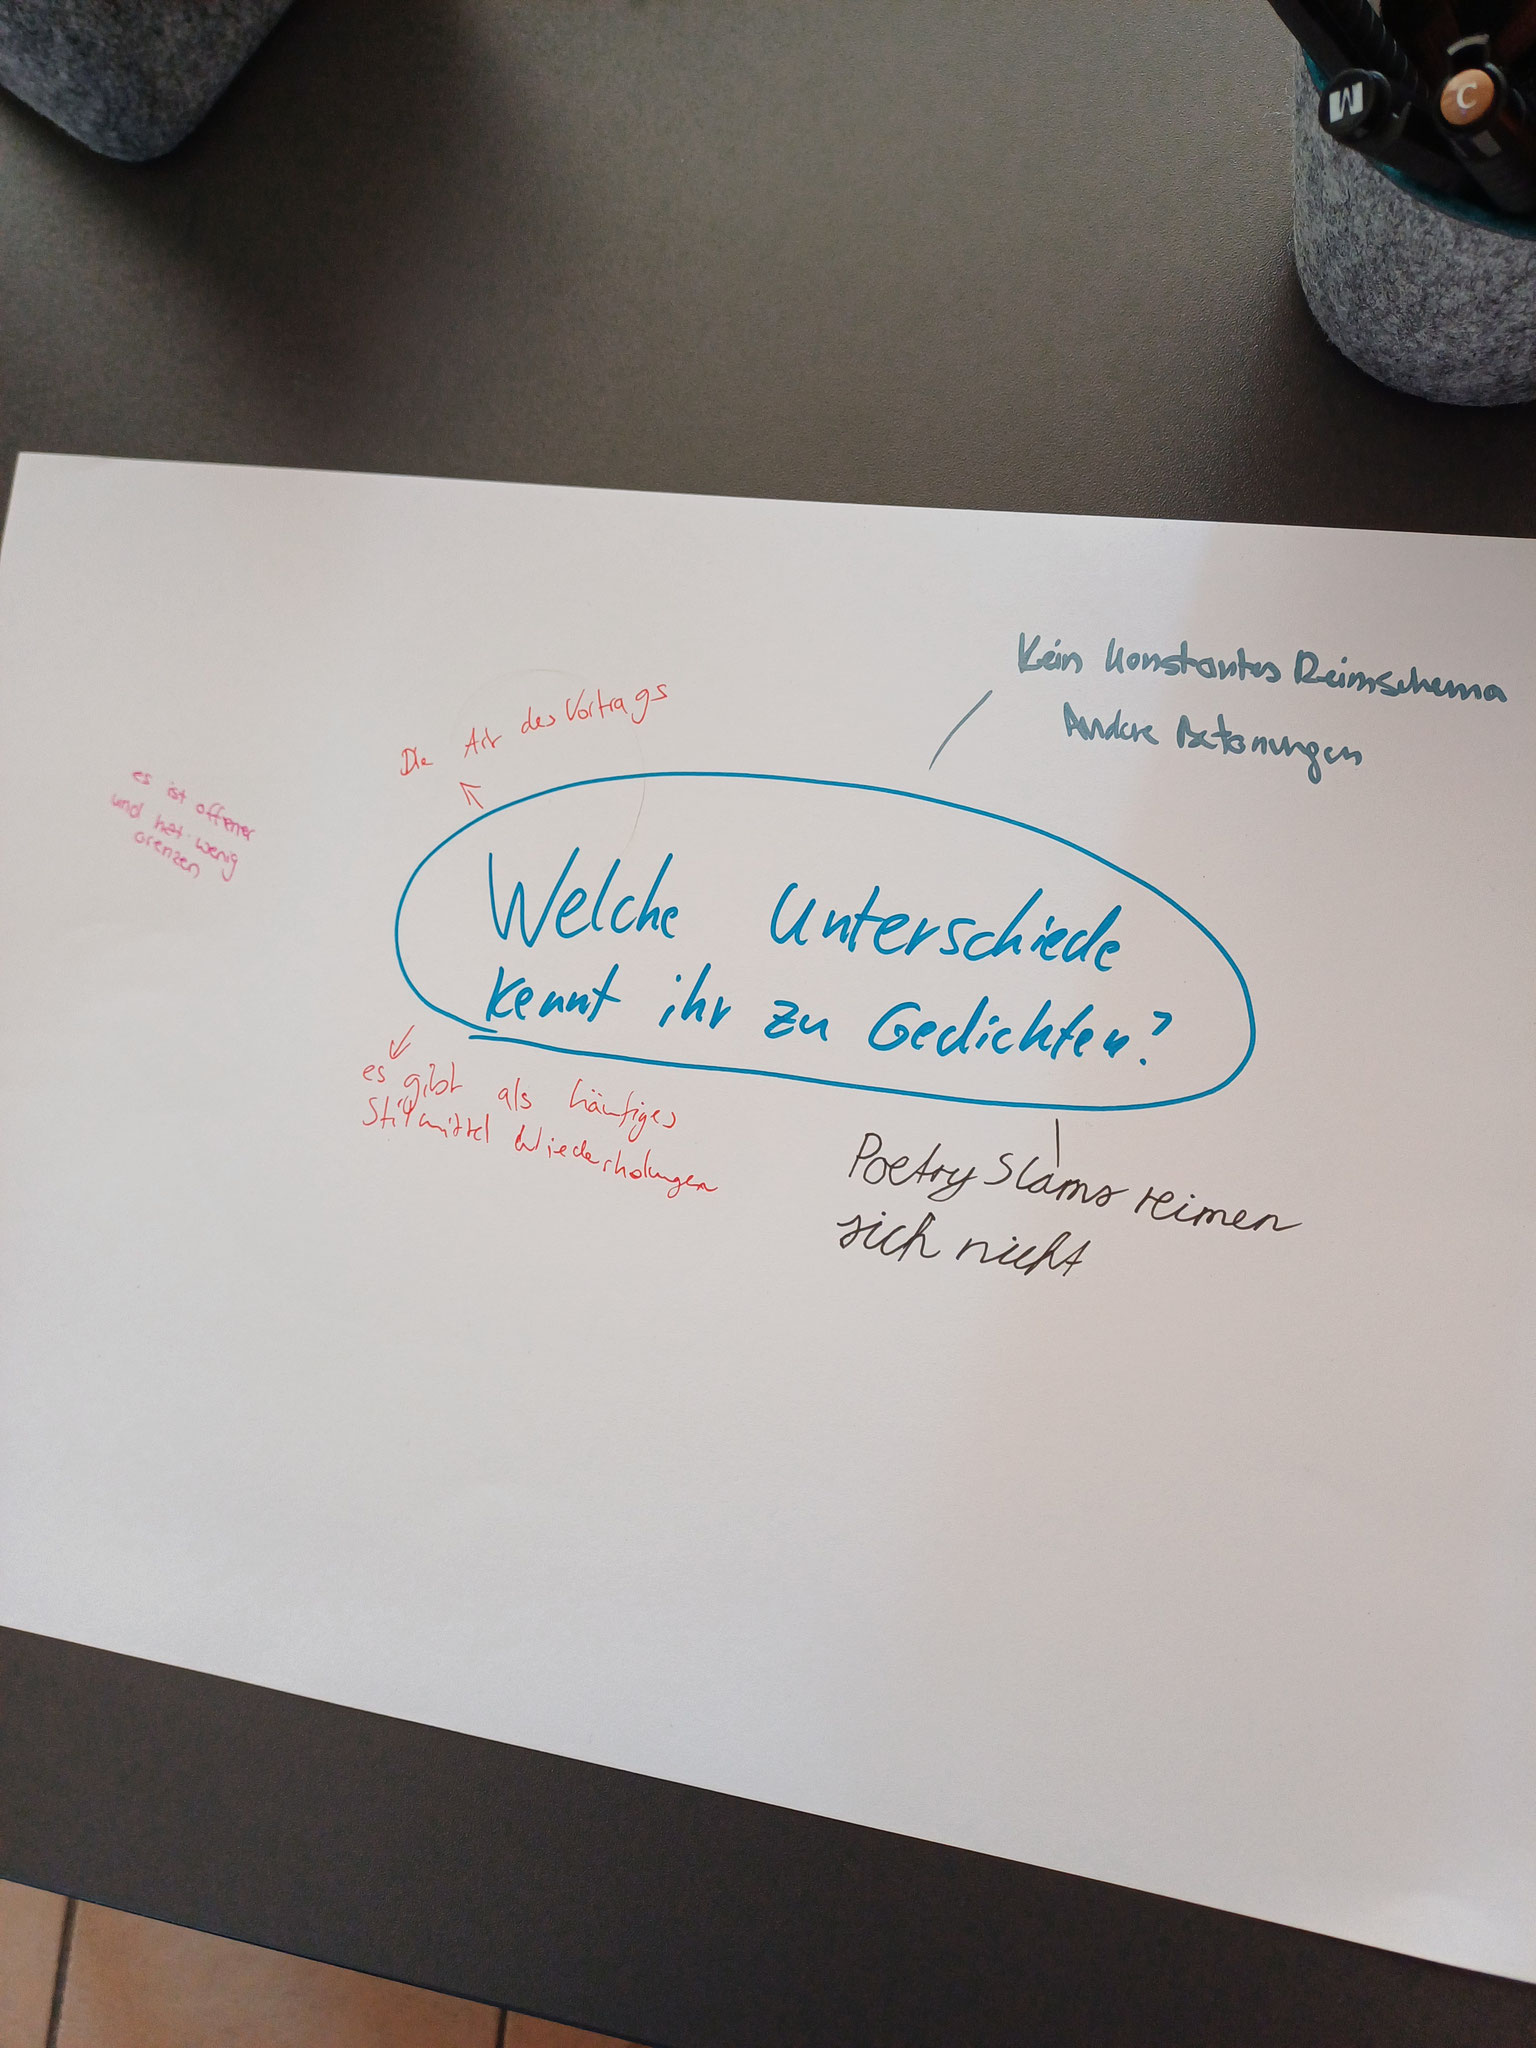 M
C
Kein Konstantes Reimschema
Andere Betonungen
Die Art des Vortrags
es ist offener
und hat wenig
Grenzen
Welche Unterschiede
kennt ihr zu Gedichten?
es gibt als häufiges
Stilmittel Wiederholungen
Poetry Slams reimen
sich nicht